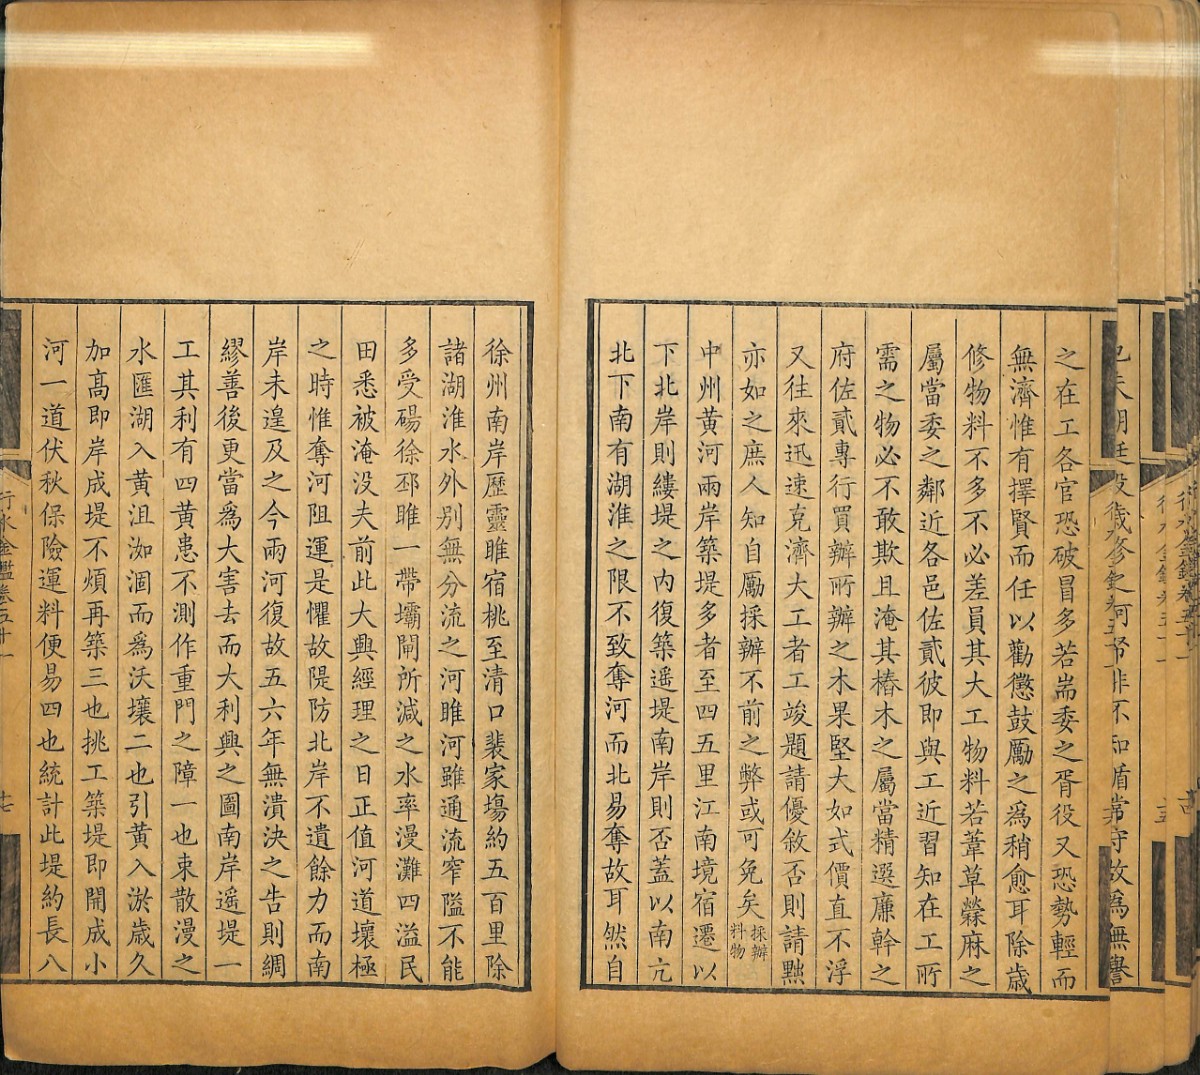 之在工各官恐破冒多若耑委之胥役又恐勢輕而
無濟惟有擇賢而任以勸懲鼓勵之爲稍愈耳除歳
修物料不多不必差員其大工物料若葦草檾麻之
屬當委之鄰近各邑佐貳彼即與工近習知在工所
需之物必不敢欺且淹其樁木之屬當精選廉幹之
府佐貳專行買辦所辦之木果堅大如式價直不浮
又往來迅速克濟大工者工竣題請優敘否則請黜
亦如之庶人知自勵採辦不前之弊或可免矣採辦物料
中州黄河兩岸築堤多者至四五里江南境宿遷以
下北岸則縷堤之内復築遥堤南岸則否蓋以南亢
北下南有湖淮之限不致奪河而北易奪故耳然自
徐州南岸歷靈睢宿桃至清口裴家塲約五百里除
諸湖淮水外别無分流之河睢河雖通流窄隘不能
多受碭徐邳睢一帶壩閘所減之水率漫灘四溢民
田悉被淹没夫前此大興經理之日正值河道壞極
之時惟奪河阻運是懼故隄防北岸不遺餘力而南
岸未遑及之今兩河復故五六年無潰決之告則綢
繆善後更當爲大害去而大利興之圖南岸遥堤一
工其利有四黄患不測作重門之障一也束散漫之
水匯湖入黄沮洳涸而爲沃壤二也引黄入淤歳久
加高即岸成堤不煩再築三也挑工築堤即開成小
河一道伏秋保險運料便易四也統計此堤約長八
行水金鑑卷五十一
十七